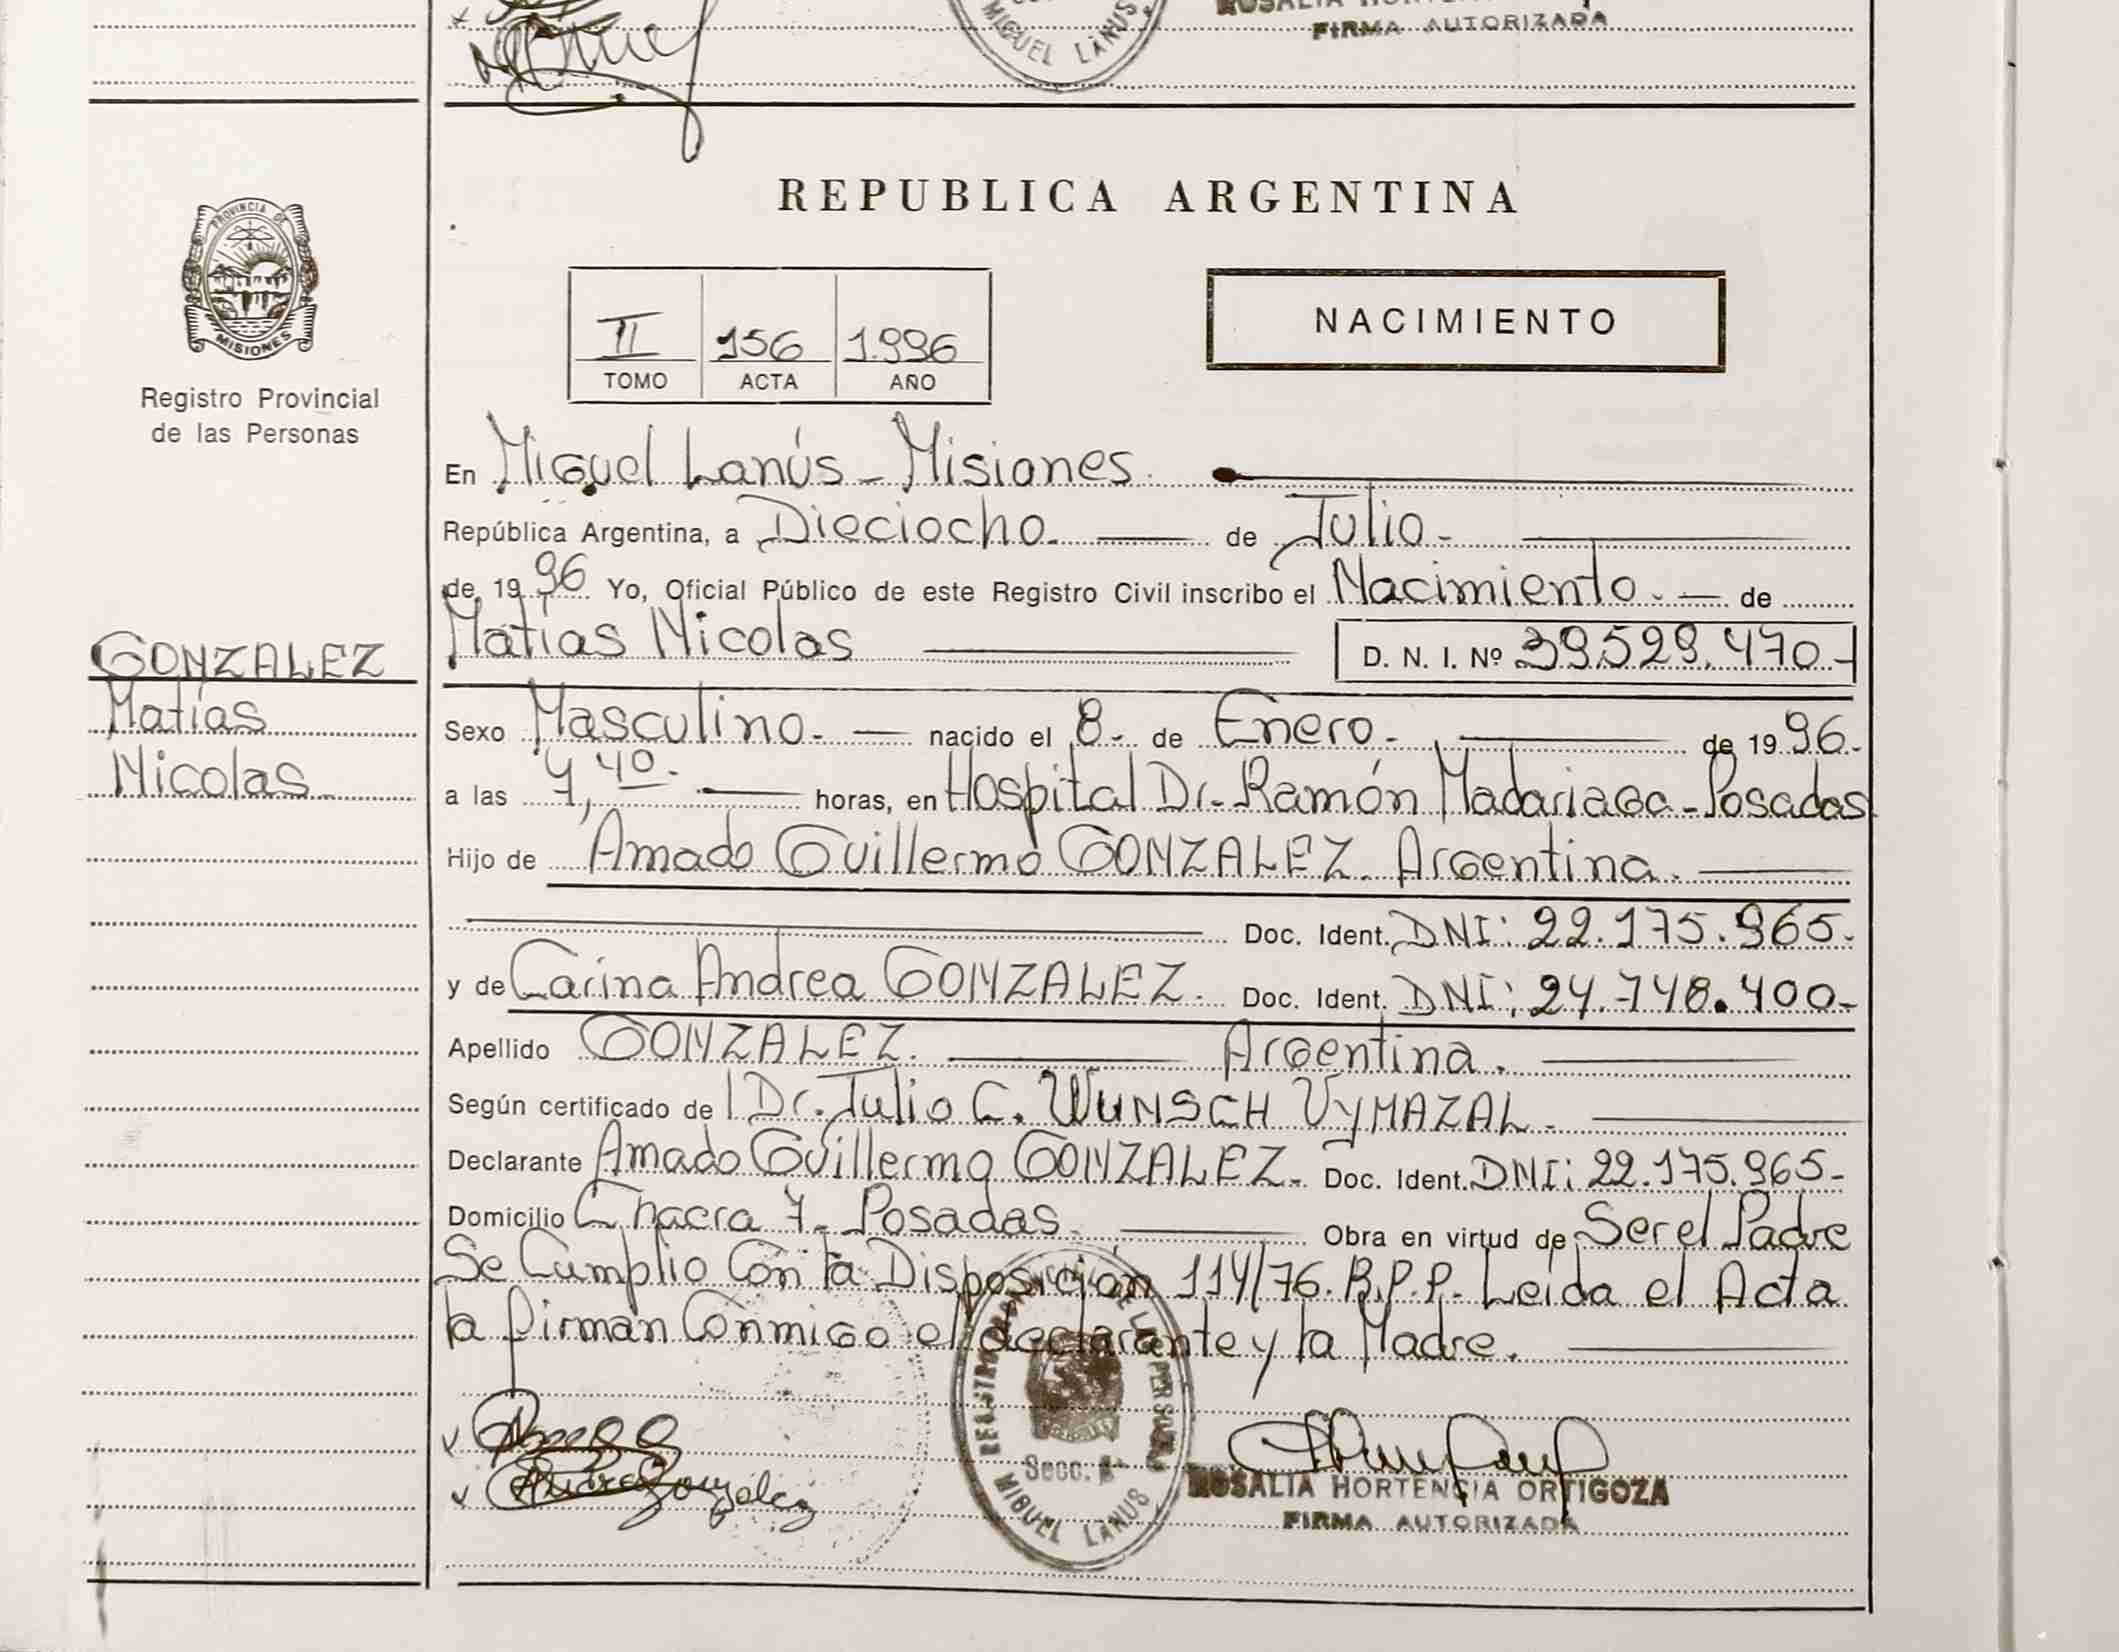 MIGUEL LANÚS
ROSALIA HORTENCIA
FIRMA AUTORIZADA
PROVINCIA DE
MISIONES
Registro Provincial
de las Personas
REPUBLICA ARGENTINA
II 156 1.996
TOMO ACTA AÑO
NACIMIENTO
En Miguel Lanús - Misiones.
República Argentina, a Dieciocho. de Julio.
de 1996 Yo, Oficial Público de este Registro Civil inscribo el Nacimiento. de
Matías Nicolas D. N. I. Nº 39.529.470.-
GONZALEZ
Matías
Nicolas
Sexo Masculino. nacido el 8. de Enero. de 1996.
a las 7,40. horas, en Hospital Dr. Ramón Madariaga - Posadas
Hijo de Amado Guillermo GONZALEZ. Argentina.
Doc. Ident. DNI: 22.175.965.
y de Carina Andrea GONZALEZ. Doc. Ident. DNI: 24.748.400-
Apellido GONZALEZ. Argentina.
Según certificado de l Dr. Julio C. WUNSCH VYMAZAL.
Declarante Amado Guillermo GONZALEZ. Doc. Ident. DNI: 22.175.965-
Domicilio Chacra 7. Posadas. Obra en virtud de Ser el Padre
Se Cumplio Con la Disposición 114/76. R.P.P. Leída el Acta
la firman Conmigo el declarante y la Madre.
Secc.
MIGUEL LANUS
ROSALIA HORTENCIA ORTIGOZA
FIRMA AUTORIZADA